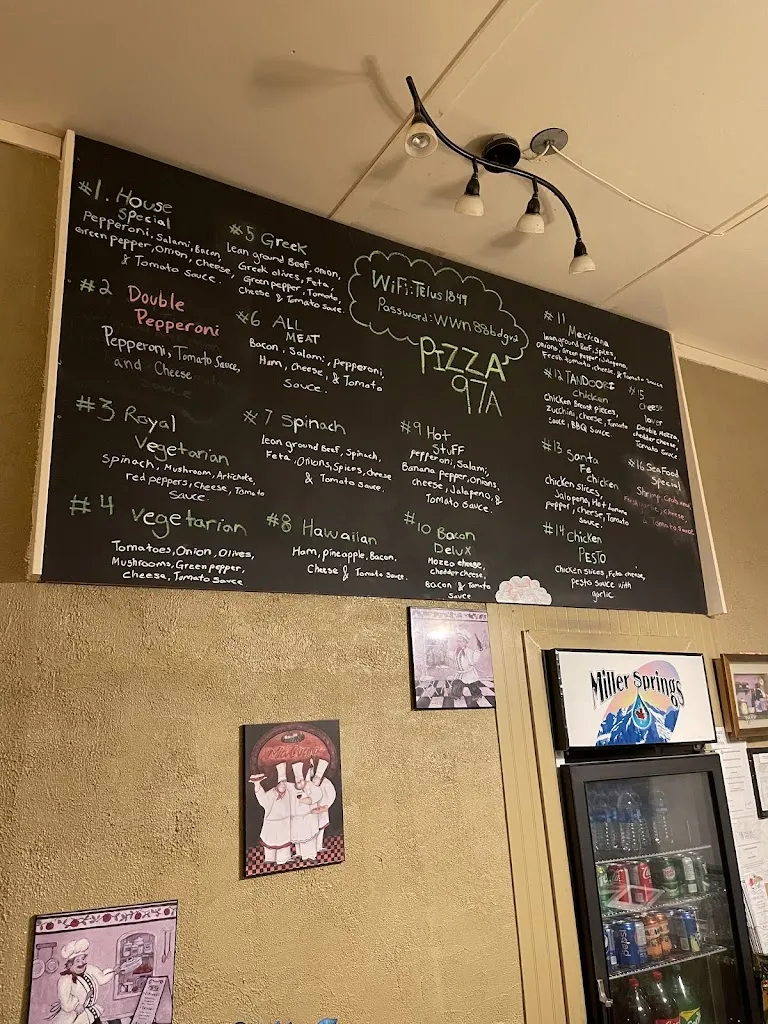 #1. House
Special
Pepperoni, Salami, Bacon,
Green pepper, Onion, Cheese,
& Tomato Sauce.
#2 Double
Pepperoni
Pepperoni, Tomato Sauce,
and Cheese
#3 Royal
Vegetarian
Spinach, Mushroom, Artichoke,
red peppers, Cheese, Tomato
Sauce
#4 Vegetarian
Tomatoes, Onion, Olives,
Mushrooms, Green pepper,
Cheese, Tomato Sauce
#5 Greek
Lean ground Beef, onion,
Greek olives, Feta,
Green pepper, Tomato,
Cheese & Tomato Sauce.
#6 ALL
MEAT
Bacon, Salami, pepperoni,
Ham, Cheese, & Tomato
Sauce.
#7 Spinach
lean ground Beef, Spinach,
Feta, Onions, Spices, cheese
& Tomato Sauce.
#8 Hawaiian
Ham, pineapple, Bacon,
Cheese & Tomato Sauce.
WiFi: Telus1849
Password: wwn88bdgv2
PIZZA
97A
#9 Hot
Stuff
pepperoni, Salami,
Banana pepper, onions,
cheese, Jalapeno, &
Tomato Sauce.
#10 Bacon
Delux
Mozza cheese,
chedder cheese,
Bacon & Tomato
Sauce
#11
Mexicana
lean ground Beef, Spices,
onions, Green pepper, Jalapeno,
Fresh tomato, cheese, & Tomato Sauce
#12 TANDOORI
chicken
Chicken Breast pieces,
Zucchini, cheese, Tomato
Sauce, BBQ Sauce.
#13 Santa
Fe
Chicken
chicken slices,
Jalapeno, Hot banana
pepper, cheese, Tomato
Sauce.
#14 Chicken
PESTO
Chicken slices, Feta cheese,
pesto sauce with
garlic
#15
Cheese
lover
Double Mozza,
chedder cheese,
Tomato Sauce
#16 Sea Food
Special
Shrimp, Crab meat,
cheese
& Tomato Sauce
Miller Springs